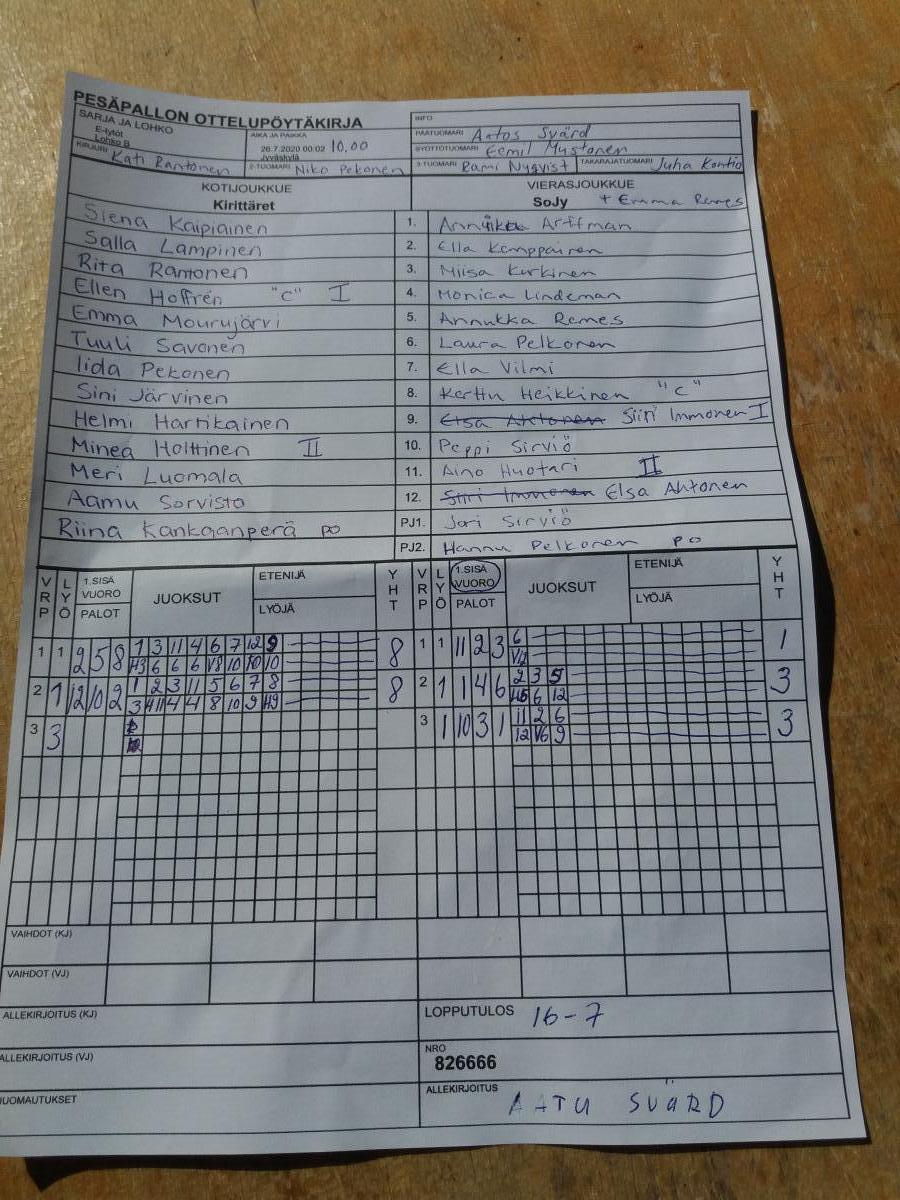 PESÄPALLON OTTELUPÖYTÄKIRJA
SARJA JA LOHKO
E-tytöt
Lohko B
AIKA JA PAIKKA
26.7.2020 00:02 10,00
Jyväskylä
INFO
PÄÄTUOMARI Aatos Svärd
SYÖTTÖTUOMARI Eemil Mustonen
KIRJURI Kati Rantonen
2-TUOMARI Niko Pekonen
3-TUOMARI Rami Nyqvist
TAKARAJATUOMARI Juha Kontio
KOTIJOUKKUE
Kirittäret
VIERASJOUKKUE
SoJy + Emma Remes
Siena Kaipiainen 1. Annukka Arffman
Salla Lampinen 2. Ella Komppainen
Rita Rantonen 3. Miisa Kurkinen
Ellen Hoffrén "C" I 4. Monica Lindeman
Emma Mourujärvi 5. Annukka Remes
Tuuli Savonen 6. Laura Pelkonen
Iida Pekonen 7. Ella Vilmi
Sini Järvinen 8. Kerttu Heikkinen "C"
Helmi Hartikainen 9. Elsa Ahtonen Siiri Immonen I
Minea Holttinen II 10. Peppi Sirviö
Meri Luomala 11. Aino Huotari II
Aamu Sorvisto 12. Siiri Immonen Elsa Ahtonen
Riina Kankaanperä po PJ1. Jari Sirviö
PJ2. Hannu Pelkonen po
VRP LYÖ 1.SISÄ VUORO PALOT JUOKSUT ETENIJÄ LYÖJÄ YHT
VRP LYÖ 1.SISÄ VUORO PALOT JUOKSUT ETENIJÄ LYÖJÄ YHT
1 1 2 5 8 1 3 11 4 6 7 12 9 8
H3 6 6 6 V8 10 10 10
1 1 11 2 3 6 1
2 1 12 10 2 1 2 3 11 5 6 7 8 8
3 4 11 4 4 8 10 9 H9
2 1 1 4 6 2 3 5 3
H5 6 12
3 3
3 1 10 3 1 11 2 6 3
12 V6 9
VAIHDOT (KJ)
VAIHDOT (VJ)
ALLEKIRJOITUS (KJ)
LOPPUTULOS 16-7
ALLEKIRJOITUS (VJ)
NRO
826666
HUOMAUTUKSET
ALLEKIRJOITUS AATU SVÄRD